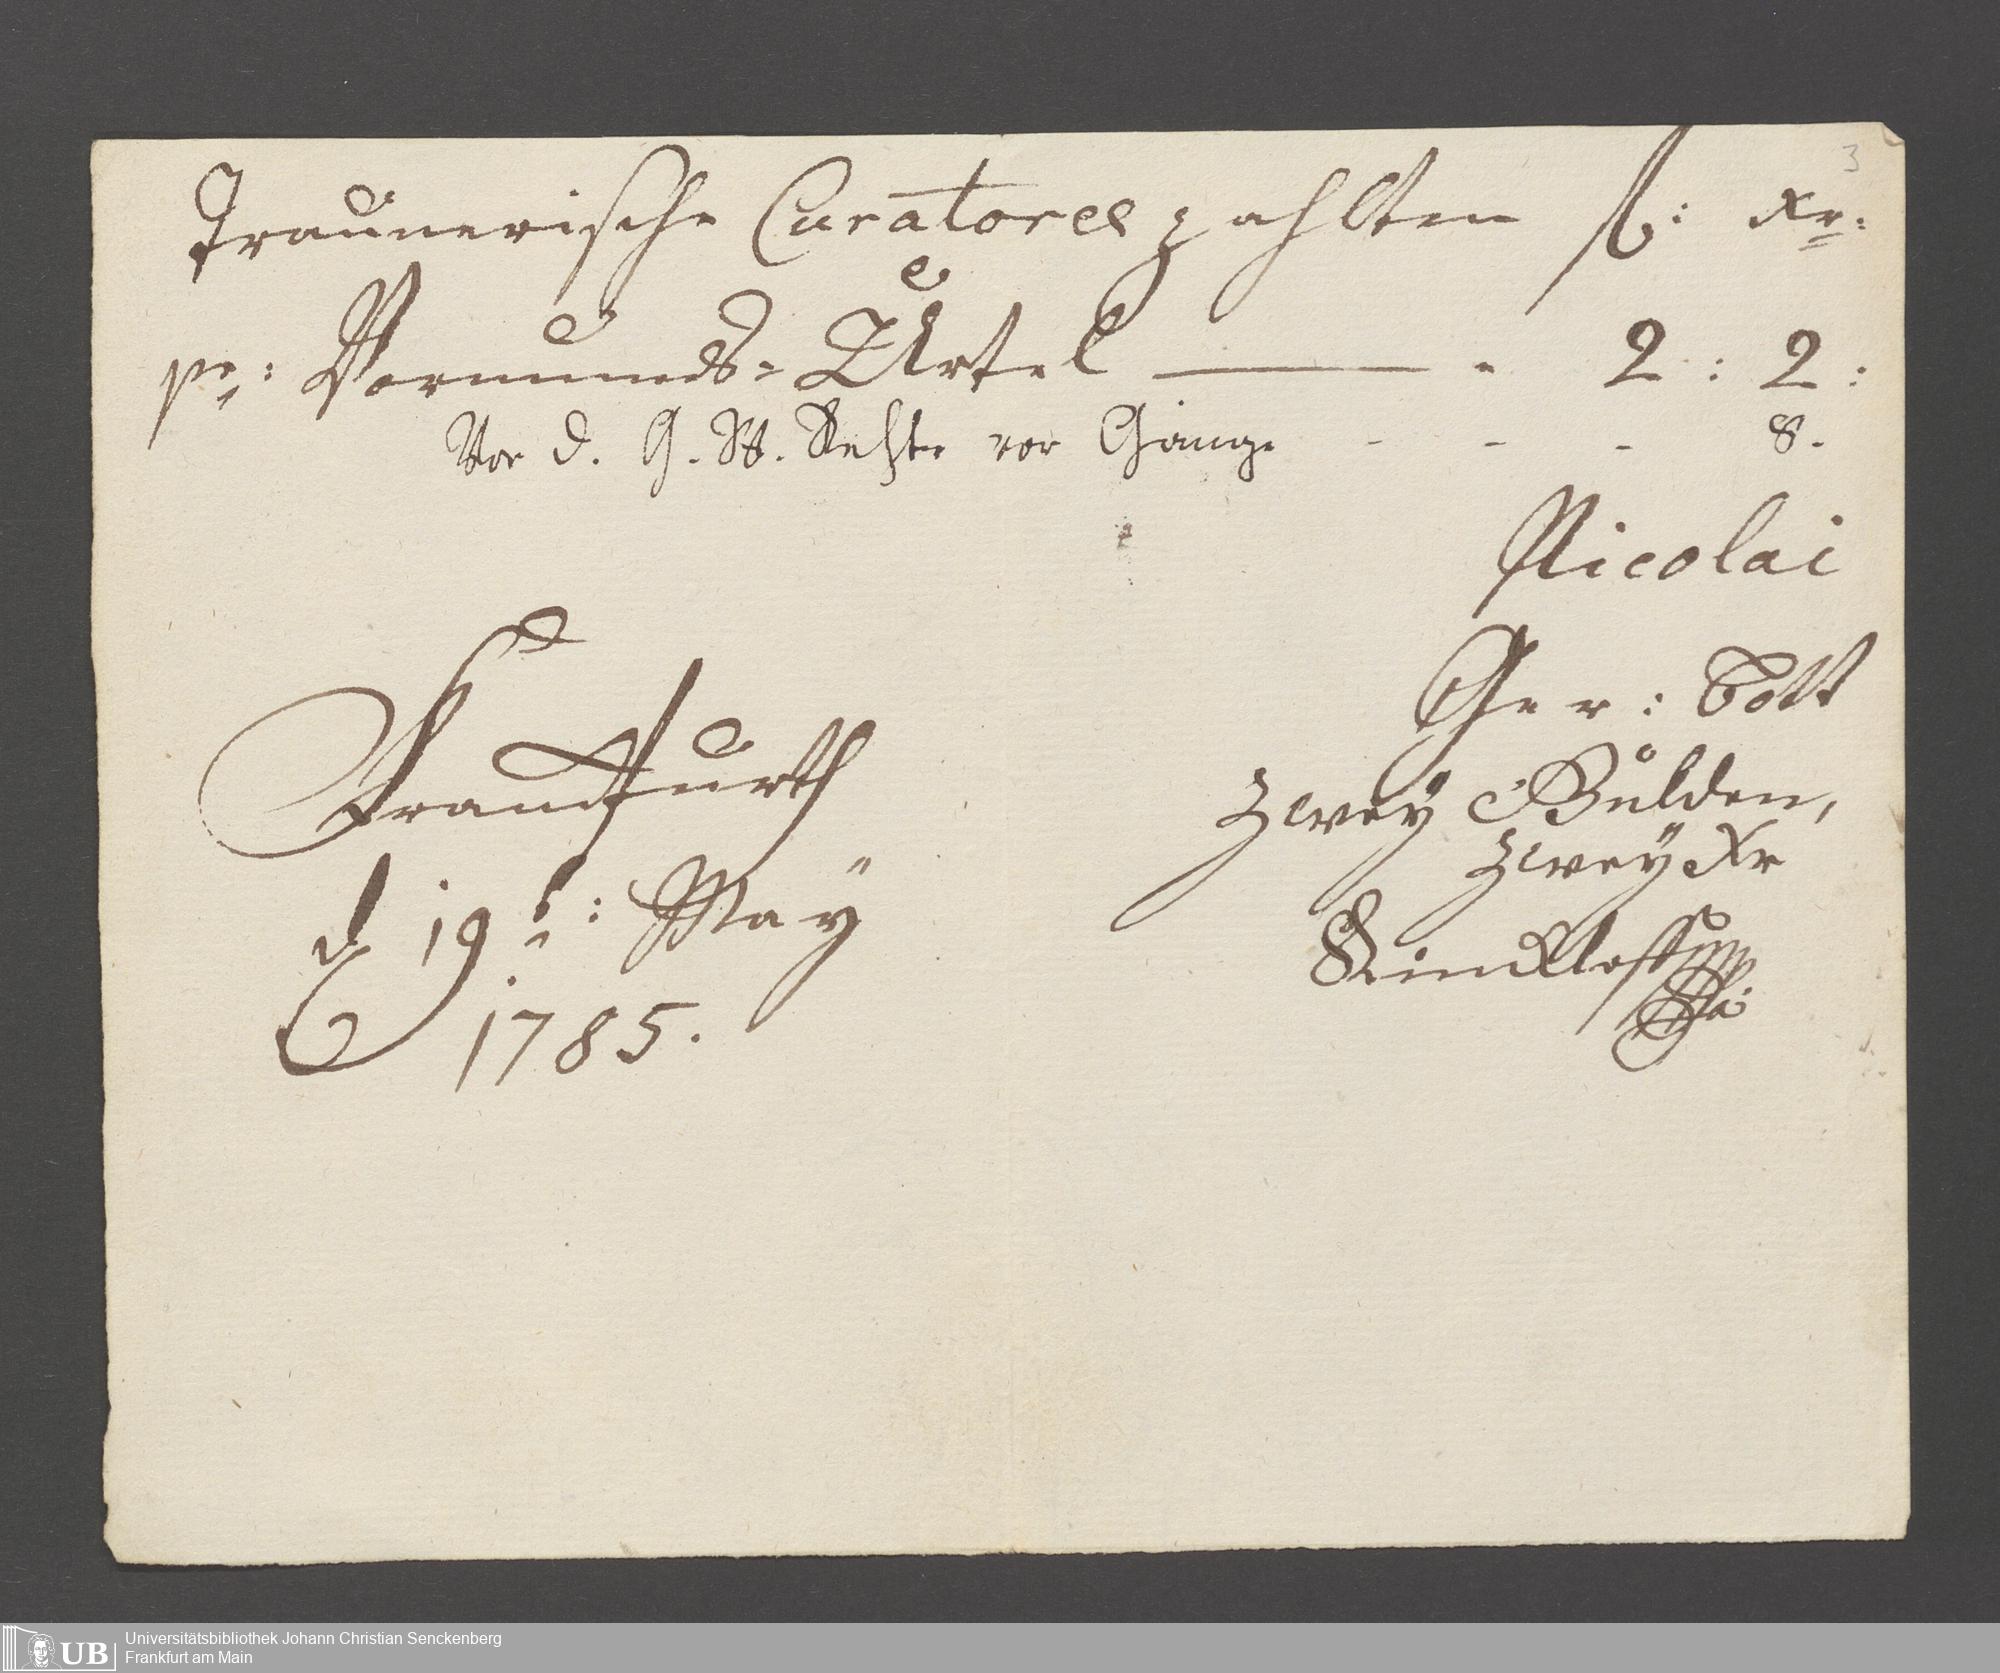 3
Traunerische Curatores zahlten fl: Xr:
pr: Vormunds= Urtel ——— - 2 : 2 :
Vor d. G. W. vor Gänge - - - 8.
Nicolai
Ger: Bott
zwey Gulden,
zwey Xr
Franckfurth
d 19t: May
1785.
Universitätsbibliothek Johann Christian Senckenberg
UB Frankfurt am Main